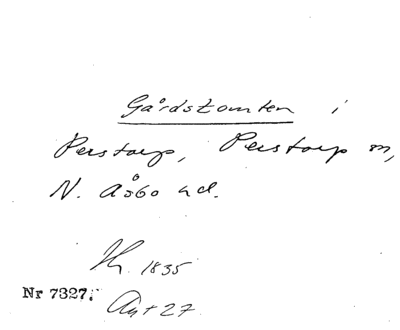 Gårdstomten i
Perstorp, Perstorp sn,
N. Åsbo hd.
1835
Nr 7327.
27.